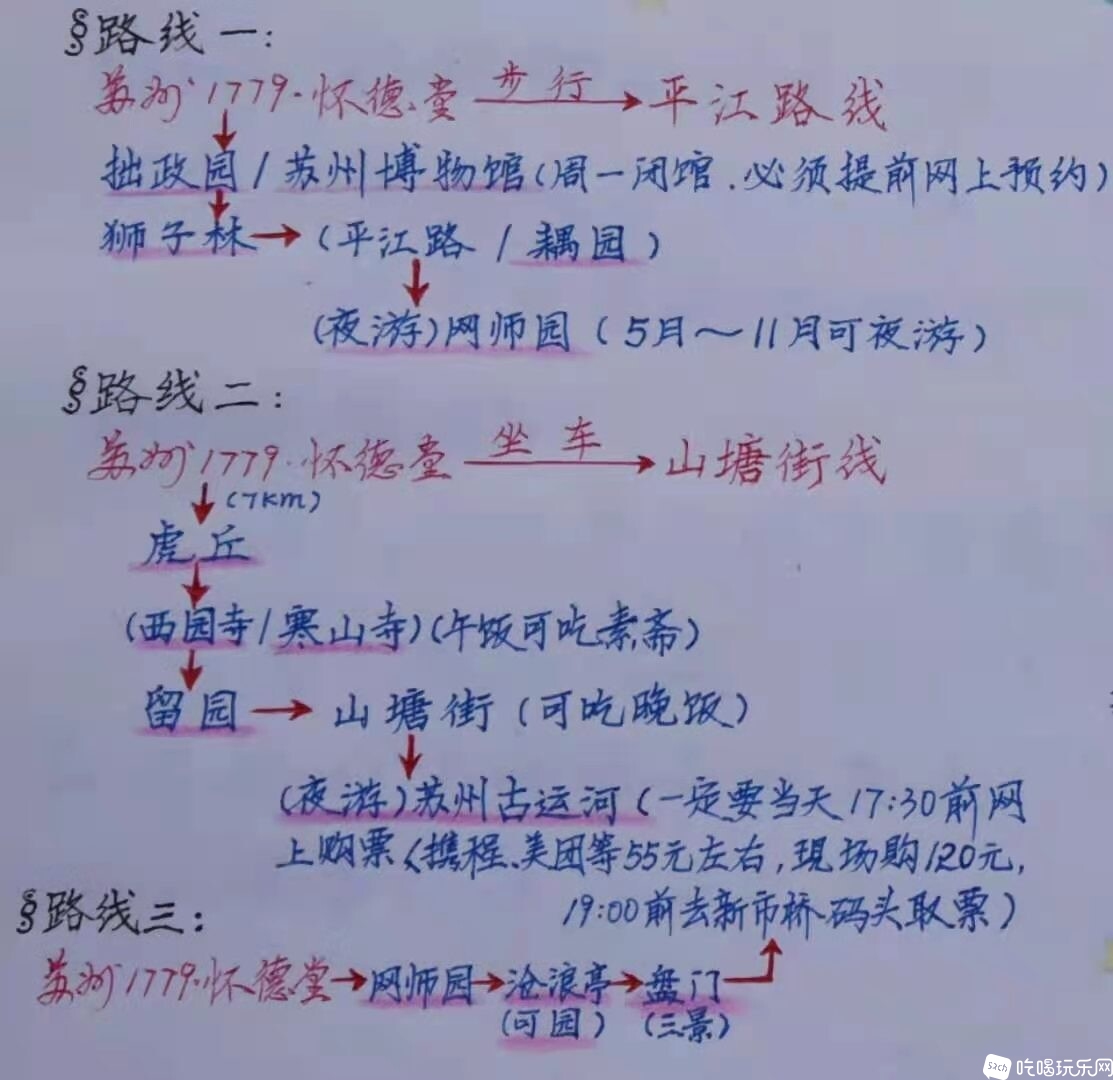 §路线一:
苏州1779·怀德堂 步行 平江路线
拙政园/苏州博物馆(周一闭馆.必须提前网上预约)
狮子林→(平江路/耦园)
(夜游)网师园(5月～11月可夜游)
§路线二:
苏州1779·怀德堂 坐车 山塘街线
(7km)
虎丘
(西园寺/寒山寺)(午饭可吃素斋)
留园→山塘街(可吃晚饭)
(夜游)苏州古运河(一定要当天17:30前网
上购票(携程、美团等55元左右,现场购120元,
19:00前去新市桥码头取票)
§路线三:
苏州1779·怀德堂→网师园→沧浪亭→盘门
(可园) (三景)
52ch 吃喝玩乐网